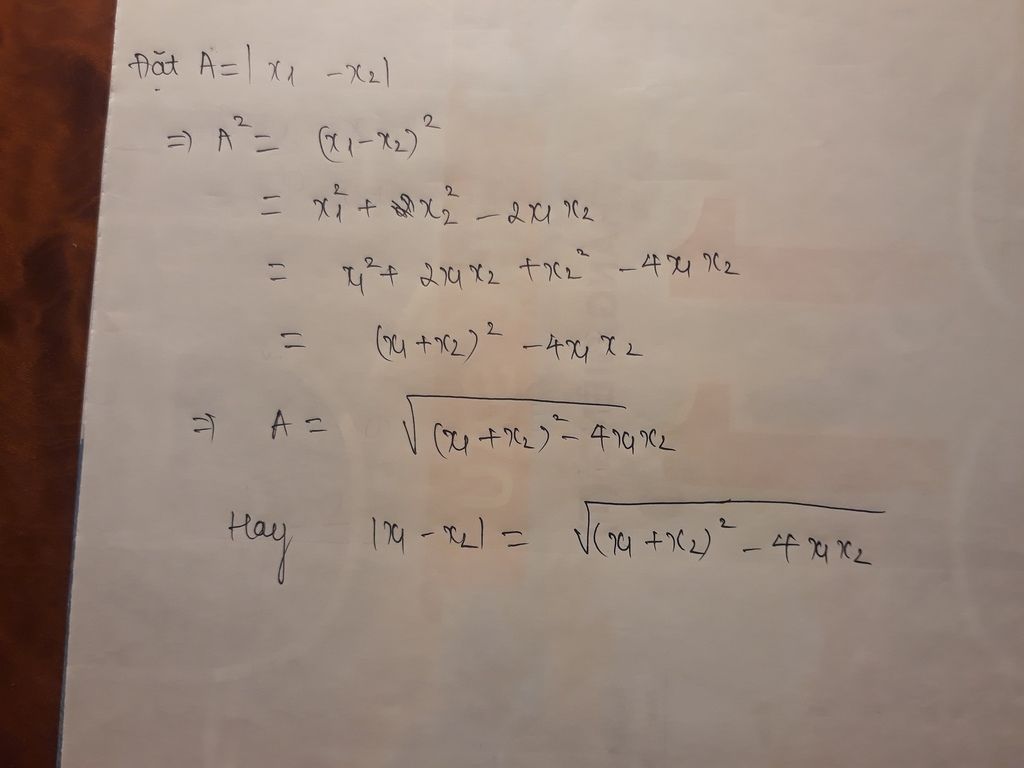 Đặt A = | x₁ - x₂ |
⇒ A² = (x₁ - x₂)²
= x₁² + x₂² - 2x₁x₂
= x₁² + 2x₁x₂ + x₂² - 4x₁x₂
= (x₁ + x₂)² - 4x₁x₂
⇒ A = √((x₁ + x₂)² - 4x₁x₂)
Hay |x₁ - x₂| = √((x₁ + x₂)² - 4x₁x₂)